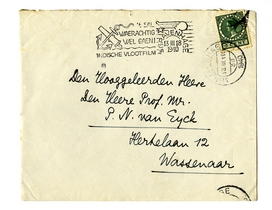 'T ZAL
WAERACHTIG
WEL GAEN!
INDISCHE VLOOTFILM
13 III 18
1940
Den Hooggeleerden Heere
Den Heere Prof. Mr.
P. N. van Eyck
Hertelaan 12
Wassenaar